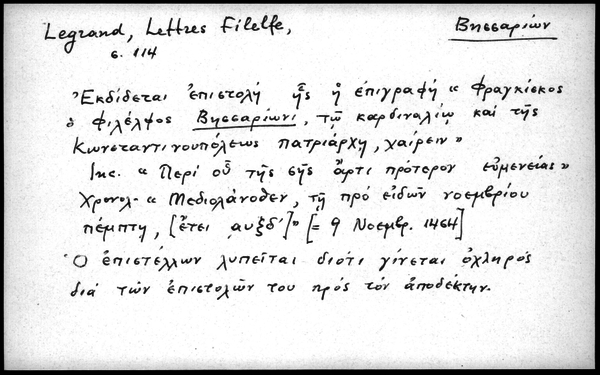 Legrand, Lettres Filelfe,
Βησσαρίων
σ. 114
Ἐκδίδεται ἐπιστολή ἧς ἡ ἐπιγραφή « Φραγκίσκος
ὁ Φιλέλφος Βησσαρίωνι, τῷ καρδιναλίῳ καὶ τῆς
Κωνσταντινουπόλεως πατριάρχῃ, χαίρειν »
Inc. « Περὶ οὗ τῆς σῆς ἄρτι πρότερον εὐμενείας »
Χρονολ. « Μεδιολάνοθεν, τῇ πρό εἰδῶν νοεμβρίου
πέμπτῃ, [ἔτει ͵αυξδ´]» [= 9 Νοεμβρ. 1464]
Ὁ ἐπιστέλλων λυπεῖται διότι γίνεται ὀχληρός
διά τῶν ἐπιστολῶν του πρός τόν ἀποδέκτην.